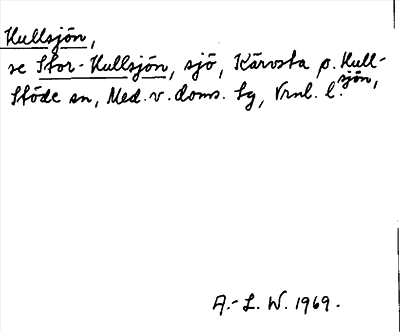 Hullsjön,
se Stor-Hullsjön, sjö, Kärvsta p. Hull-
sjön,
Stöde sn, Med. v. doms. tg, Vrnl. l.
A.-L. W. 1969.